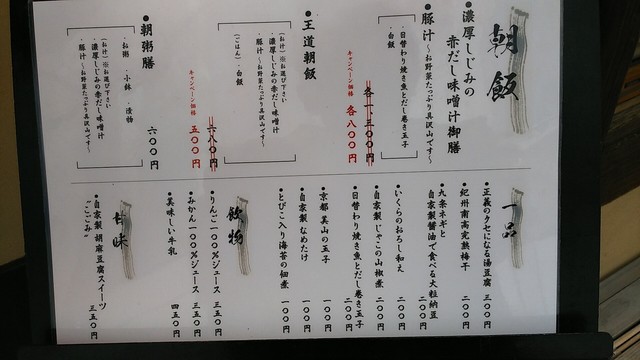 朝飯
●濃厚しじみの
赤だし味噌汁御膳
●豚汁～お野菜たっぷり具沢山です～
・日替わり焼き魚とだし巻き玉子
・白飯
各一、三〇〇円
キャンペーン価格 各八〇〇円
●王道朝飯
（お汁）※お選び下さい
・濃厚しじみの赤だし味噌汁
・豚汁～お野菜たっぷり具沢山です～
（ごはん）・白飯
六八〇円
キャンペーン価格 五〇〇円
●朝粥膳
六〇〇円
・お粥 ・小鉢 ・漬物
（お汁）※お選び下さい
・濃厚しじみの赤だし味噌汁
・豚汁～お野菜たっぷり具沢山です～
一品
●正義のクセになる湯豆腐 三〇〇円
●紀州南高完熟梅干 二〇〇円
●九条ネギと
自家製醤油で食べる大粒納豆 二〇〇円
●いくらのおろし和え 二〇〇円
●自家製じゃこの山椒煮 二〇〇円
●日替わり焼き魚とだし巻き玉子 二〇〇円
●京都 美山の玉子 一〇〇円
●自家製なめたけ 一〇〇円
●とびこ入り海苔の佃煮 一〇〇円
飲物
●りんご一〇〇％ジュース 三五〇円
●みかん一〇〇％ジュース 三五〇円
●美味しい牛乳 四五〇円
甘味
●自家製 胡麻豆腐スイーツ
“ごごみ” 三五〇円